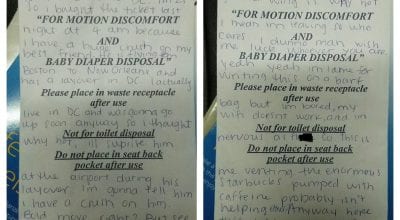 so I bought the ticket last
"FOR MOTION DISCOMFORT
night at 4 am because
AND
I have a huge crush on my
BABY DIAPER DISPOSAL"
best friend
Boston to New Orleans and
has a layover in DC I actually
Please place in waste receptacle
after use
live in DC and was gonna go
up soon anyway so I thought
Not for toilet disposal
why not, ill suprise him
Do not place in seat back
pocket after use
at the airport during his
layover. I'm gonna tell him
I have a crush on him.
Bold move right? But see
why not
I mean I'm leaving so who
"FOR MOTION DISCOMFORT
cares I dunno man wish
AND
me luck whoever you are
BABY DIAPER DISPOSAL"
yeah yeah I'm lame for
writing this on a barf
Please place in waste receptacle
after use
bag but I'm bored, my
wifi doesnt work, and im
Not for toilet disposal
nervous so this is
Do not place in seat back
pocket after use
me venting the enormous
starbucks pumped with
caffeine probably isn't
helping anyway here